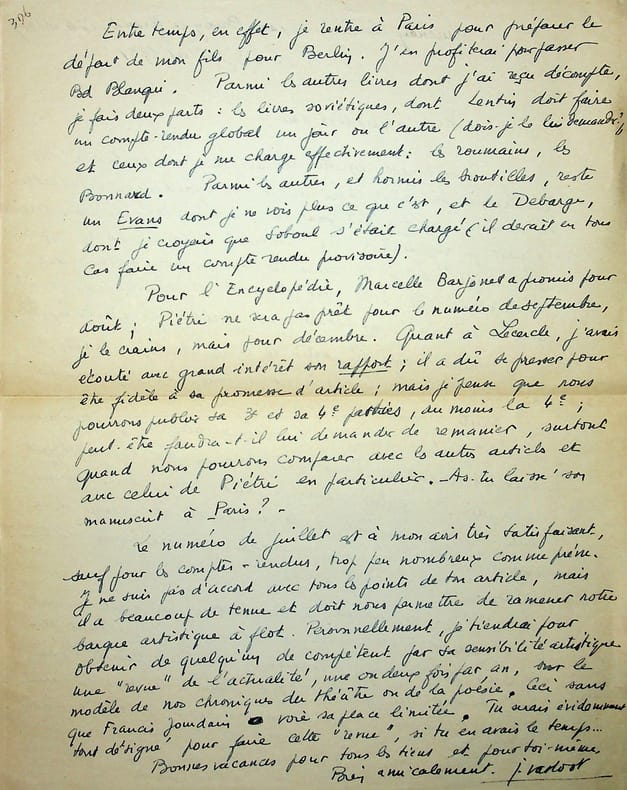 306
Entre temps, en effet, je rentre à Paris pour préparer le
départ de mon fils pour Berlin. J'en profiterai pour passer
Bd Blanqui. Parmi les autres livres dont j'ai reçu décompte,
je fais deux parts : les livres soviétiques, dont Lentin doit faire
un compte-rendu global un jour ou l'autre (dois-je le lui demander ?)
et ceux dont je me charge effectivement : les roumains, les
Bonnard. Parmi les autres, et hormis les broutilles, reste
un Evans dont je ne vois plus ce que c'est, et le Debarge,
dont je croyais que Soboul s'était chargé (il devait en tous
cas faire un compte rendu provisoire).
Pour l'Encyclopédie, Marcelle Barjonet a promis pour
août ; Piétri ne sera pas prêt pour le numéro de septembre,
je le crains, mais pour décembre. Quant à Lecercle, j'avais
écouté avec grand intérêt son rapport ; il a dû se presser pour
être fidèle à sa promesse d'article ; mais je pense que nous
pourrons publier sa 3e et sa 4e parties, au moins la 4e ;
peut-être faudra-t-il lui demander de remanier, surtout
quand nous pourrons comparer avec les autres articles et
avec celui de Piétri en particulier. - As-tu laissé son
manuscrit à Paris ? -
Le numéro de juillet est à mon avis très satisfaisant,
sauf pour les comptes-rendus, trop peu nombreux comme prévu.
Je ne suis pas d'accord avec tous les points de ton article, mais
il a beaucoup de tenue et doit nous permettre de ramener notre
barque artistique à flot. Personnellement, je tiendrai pour
obtenir de quelqu'un de compétent par sa sensibilité artistique
une "revue" de l'actualité, une ou deux fois par an, sur le
modèle de nos chroniques du théâtre ou de la poésie. Ceci sans
que Francis Jourdain voie sa place limitée. Tu serais évidemment
tout désigné pour faire cette "revue", si tu en avais le temps...
Bonnes vacances pour tous les tiens et pour toi-même
Bien amicalement. J. Varloot